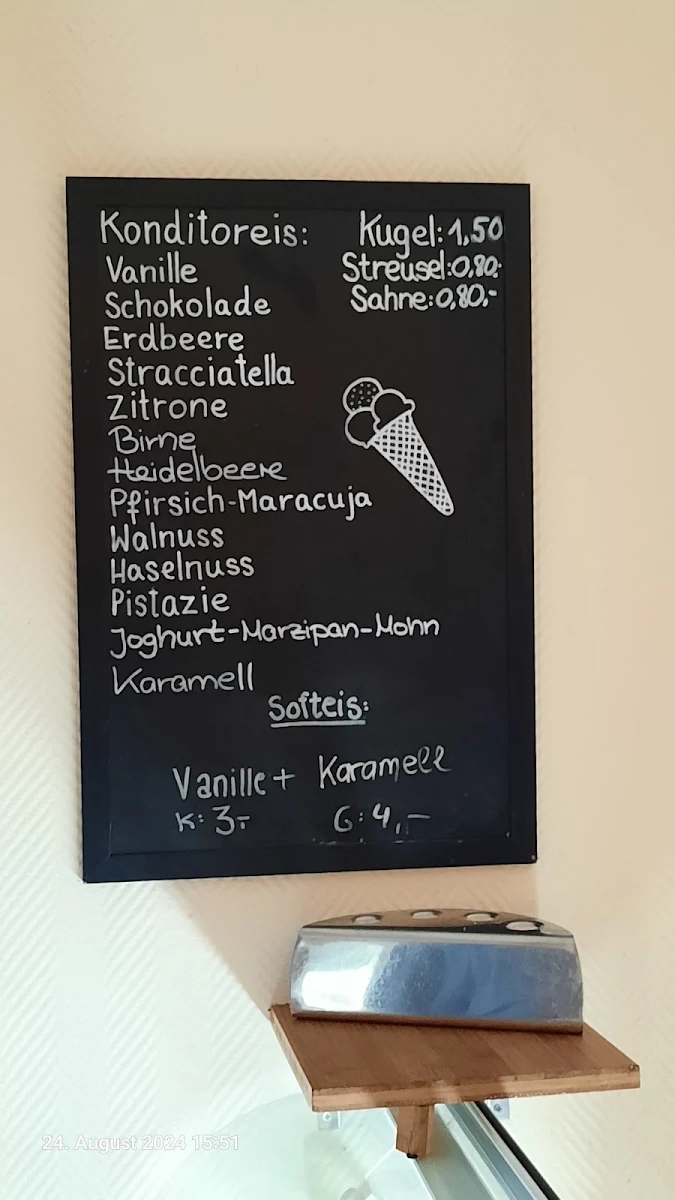 Konditoreis: Kugel: 1,50
Vanille Streusel: 0,80.-
Schokolade Sahne: 0,80.-
Erdbeere
Stracciatella
Zitrone
Birne
Heidelbeere
Pfirsich-Maracuja
Walnuss
Haselnuss
Pistazie
Joghurt-Marzipan-Mohn
Karamell
Softeis:
Vanille + Karamell
K: 3,- G: 4,-
24. August 2024 15:51